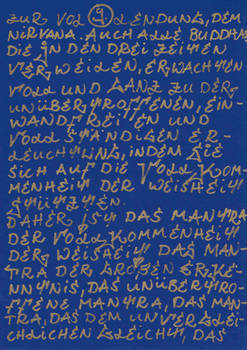 ZUR VOLL 9. LENDUNG, DEM
NIRVANA. AUCH ALLE BUDDHAS
DIE IN DEN DREI ZEITEN
VERWEILEN, ERWACHTEN
VOLL UND GANZ ZU DER
UNÜBERTROFFENEN, EIN-
WANDFREIEN UND
VOLLSTÄNDIGEN ER-
LEUCHTUNG, INDEM SIE
SICH AUF DIE VOLLKOM-
MENHEIT DER WEISHEIT
STÜTZTEN.
DAHER IST DAS MANTRA
DER VOLLKOMMENHEIT
DER WEISHEIT, DAS MAN-
TRA DER GROßEN ERKE-
NNTNIS, DAS UNÜBERTRO-
FFENE MANTRA, DAS MAN-
TRA, DAS DEM UNVERGLEI-
CHLICHEN GLEICHT, DAS